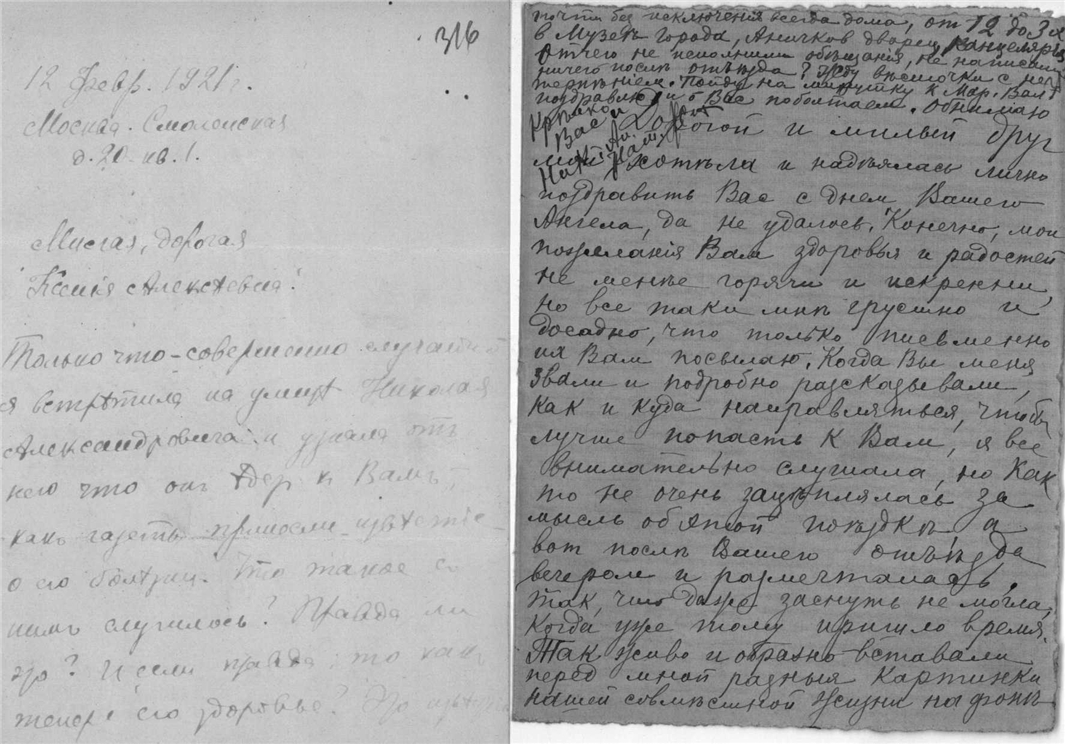 316
12 Февр. 1921 г.
Москва. Смоленская
д. 20. кв. 1.
Милая, дорогая
Ксенія Алексѣевна!
Только что совершенно случайно
я встрѣтила на улицѣ Николая
Александровича и узнала отъ
него что онъ ѣдет к Вамъ,
какъ газеты принесли извѣстіе
о его болѣзни. Что такое съ
нимъ случилось? Правда ли
это? И если правда, то какъ
теперь его здоровье? Это
почти без исключения всегда дома, от 12 до 3 я
в Музеѣ города, Аничков дворец, Канцелярия
Отчего не исполнили обѣщания, не написали
ничего послѣ отъѣзда? Жду вѣсточки с не
терпѣнiем. Пойду на минутку к Мар. Вал
поздравлю и о Вас поболтаем. Обнимаю
Крѣпко
Вас и
Дорогой и милый друг
мой хотѣла и надѣялась лично
поздравить Вас с днем Вашего
Ангела, да не удалось. Конечно, мои
пожеланія Вам здоровья и радостей
не менѣе горячи и искренни,
но все таки мнѣ грустно и
досадно, что только письменно
их Вам посылаю. Когда Вы меня
звали и подробно рассказывали,
как и куда направляться, чтобы
лучше попасть к Вам, я все
внимательно слушала, но как
то не очень зацѣплялась за
мысль об этой поѣздкѣ а
вот послѣ Вашего отъѣзда
вечером и размечталась,
так, что даже заснуть не могла,
когда уже тому пришло время.
Так живо и образно вставали
перед мной разныя картинки
нашей совмѣстной жизни на фонѣ